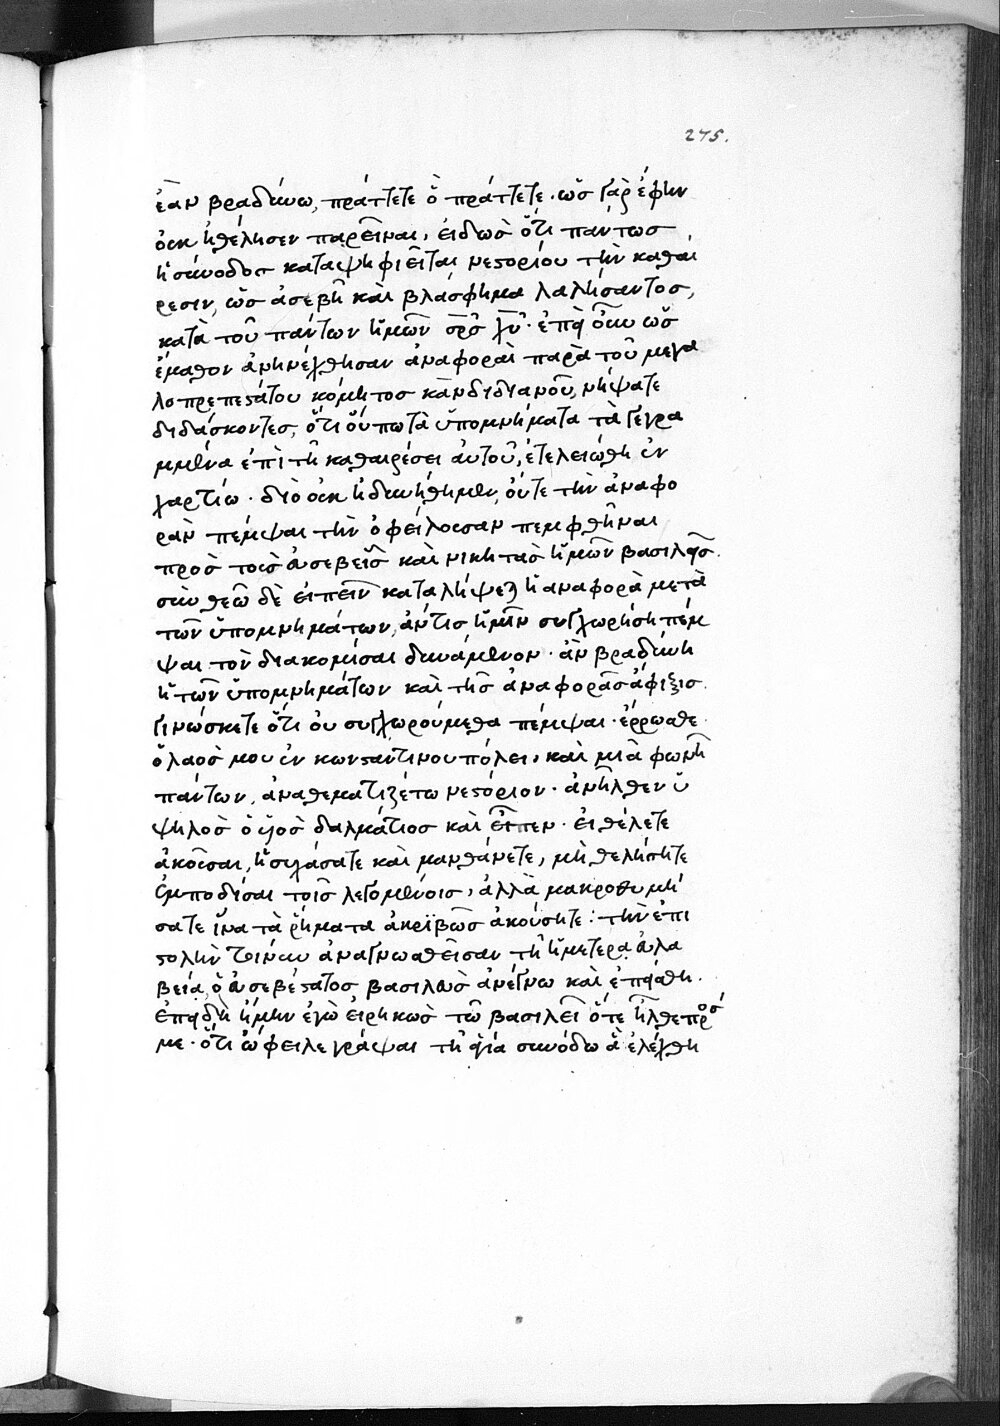 275.
ἐὰν βραδύνω, πράττετε ὃ πράττετε · ὡς γὰρ ἔφην
οὐκ ἠθέλησεν παρεῖναι, εἰδὼς ὅτι πάντως
ἡ σύνοδος καταψηφιεῖται νεστορίου τὴν καθαί
ρεσιν, ὡς ἀσεβῆ καὶ βλάσφημα λαλήσαντος,
κατὰ τοῦ πάντων ἡμῶν σρς χυ · ἐπεὶ οὖν ὡς
ἔμαθον ἀνηνέχθησαν ἀναφοραὶ παρὰ τοῦ μεγα
λοπρεπεστάτου κόμητος κανδιδιανοῦ, νήψατε
διδάσκοντες, ὅτι οὔπω τὰ ὑπομνήματα τὰ γεγρα
μμένα ἐπὶ τῆ καθαιρέσει αὐτοῦ, ἐτελειώθη ἐν
χαρτίω · διὸ οὐκ ἠδυνήθημεν, οὔτε τὴν ἀναφο
ρὰν πέμψαι τὴν ὀφείλουσαν πεμφθῆναι
πρὸς τοὺς εὐσεβεῖς καὶ νικητὰς ἡμῶν βασιλεῖς.
σὺν θεῶ δὲ εἰπεῖν καταλήψεται ἡ ἀναφορὰ μετὰ
τῶν ὑπομνημάτων, ἄν τις ἡμῖν συγχωρήση πέμ
ψαι τὸν διακομίσαι δυνάμενον · ἂν βραδύνη
ἡ τῶν ὑπομνημάτων καὶ τῆς ἀναφορᾶς ἄφιξις.
γινώσκετε ὅτι οὐ συγχωρούμεθα πέμψαι · ἔρρωσθε ·
ὁ λαός μου ἐν κωνσταντινουπόλει, καὶ μιᾶ φωνῆ
πάντων, ἀναθεματιζέτω νεστόριον · ἀνῆλθεν ὑ
ψηλὸς ὁ ὅσιος δαλμάτιος καὶ εἶπεν · εἰ θέλετε
ἀκοῦσαι, ἡσυχάσατε καὶ μανθάνετε, μὴ θελήσητε
ἐμποδίσαι τοῖς λεγομένοις, ἀλλὰ μακροθυμή
σατε ἵνα τὰ ῥήματα ἀκριβῶς ἀκούσητε : τὴν ἐπι
στολὴν τοίνυν ἀναγνωσθεῖσαν τῆ ἡμετέρα εὐλα
βεία, ὁ εὐσεβέστατος βασιλεὺς ἀνέγνω καὶ ἐπείσθη ·
ἐπειδὴ ἤμην ἐγὼ εἰρηκὼς τῶ βασιλεῖ ὅτε ἦλθε πρός
με · ὅτι ὤφειλε γράψαι τῆ ἁγία συνόδω ἃ ἐλέχθη